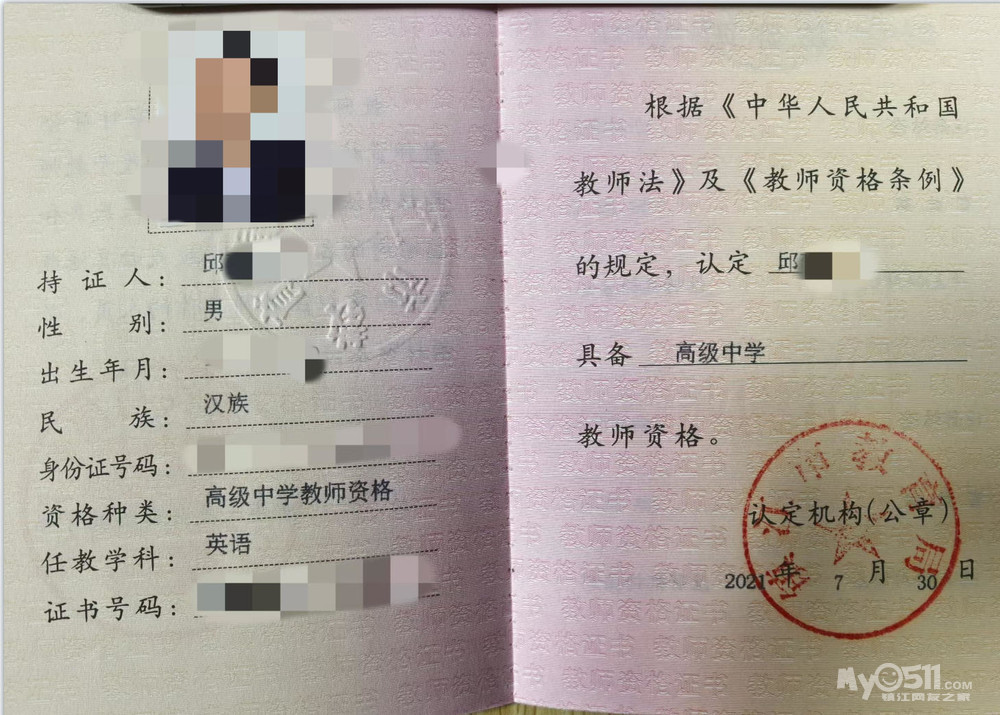 持证人：邱
性别：男
出生年月：
民族：汉族
身份证号码：
资格种类：高级中学教师资格
任教学科：英语
证书号码：
根据《中华人民共和国
教师法》及《教师资格条例》
的规定，认定 邱
具备 高级中学
教师资格。
认定机构（公章）
2021年 7月 30日
My0511.COM
镇江网友之家